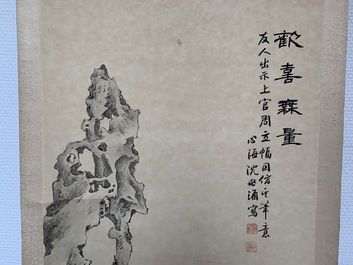 歡喜無量
友人出示上官周立幅因仿其筆意
心海沈心海寫